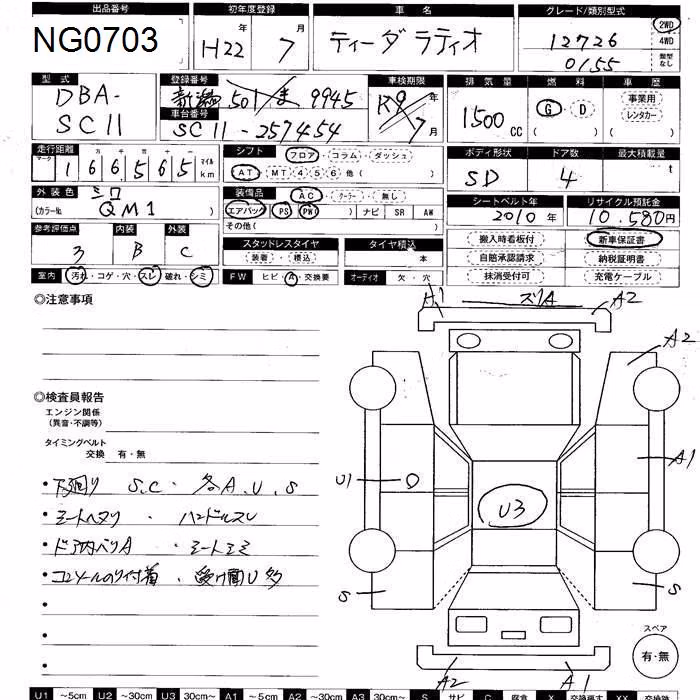 出品番号 初年度登録 車名 グレード/類別型式
NG0703 H22年 7月 ティーダ ラティオ 12726 0155 2WD 4WD 類型なし
型式 登録番号 車検期限 排気量 燃料 車歴
DBA-SC11 新潟 501 ま 9945 R9年 7月 1500cc G・D ( )( ) 事業用 レンタカー ( )
車台番号
SC11-257454
走行距離 シフト フロア・コラム・ダッシュ ボディ形状 ドア数 最大積載量
マーク 十万千百十 166565 マイル km AT・MT 4 5 6 他( ) SD 4 t
外装色 装備品 AC・クーラー・無し シートベルト年 リサイクル預託金
シロ
(カラーNo. QM1 ) エアバッグ( ) PS PW( ) ナビ SR AW 2010年 10,580円
その他( )
参考評価点 内装 外装 スタッドレスタイヤ タイヤ積込 搬入時看板付 新車保証書
3 B C 装着・積込 本 自賠承認請求 納税証明書
室内 汚れ・コゲ・穴・スレ・破れ・シミ FW ヒビ・A・交換要 オーディオ 欠・穴 抹消受付可 充電ケーブル
◎注意事項
A1 スリA A2
A2
◎検査員報告
エンジン関係
(異音・不調等)
タイミングベルト
交換 有・無
A1
・下廻り S.C・各A.U.S
U1
・シートヘタリ・ハンドルスレ
U3
・ドア内ハリA・シートシミ
・コンソールのり付着・受け面U多
S S
スペア
有・無
A2 A1
U1 ~5cm U2 ~30cm U3 30cm~ A1 ~5cm A2 ~30cm A3 30cm~ S サビ C 腐食 X 交換要す XX 交換跡